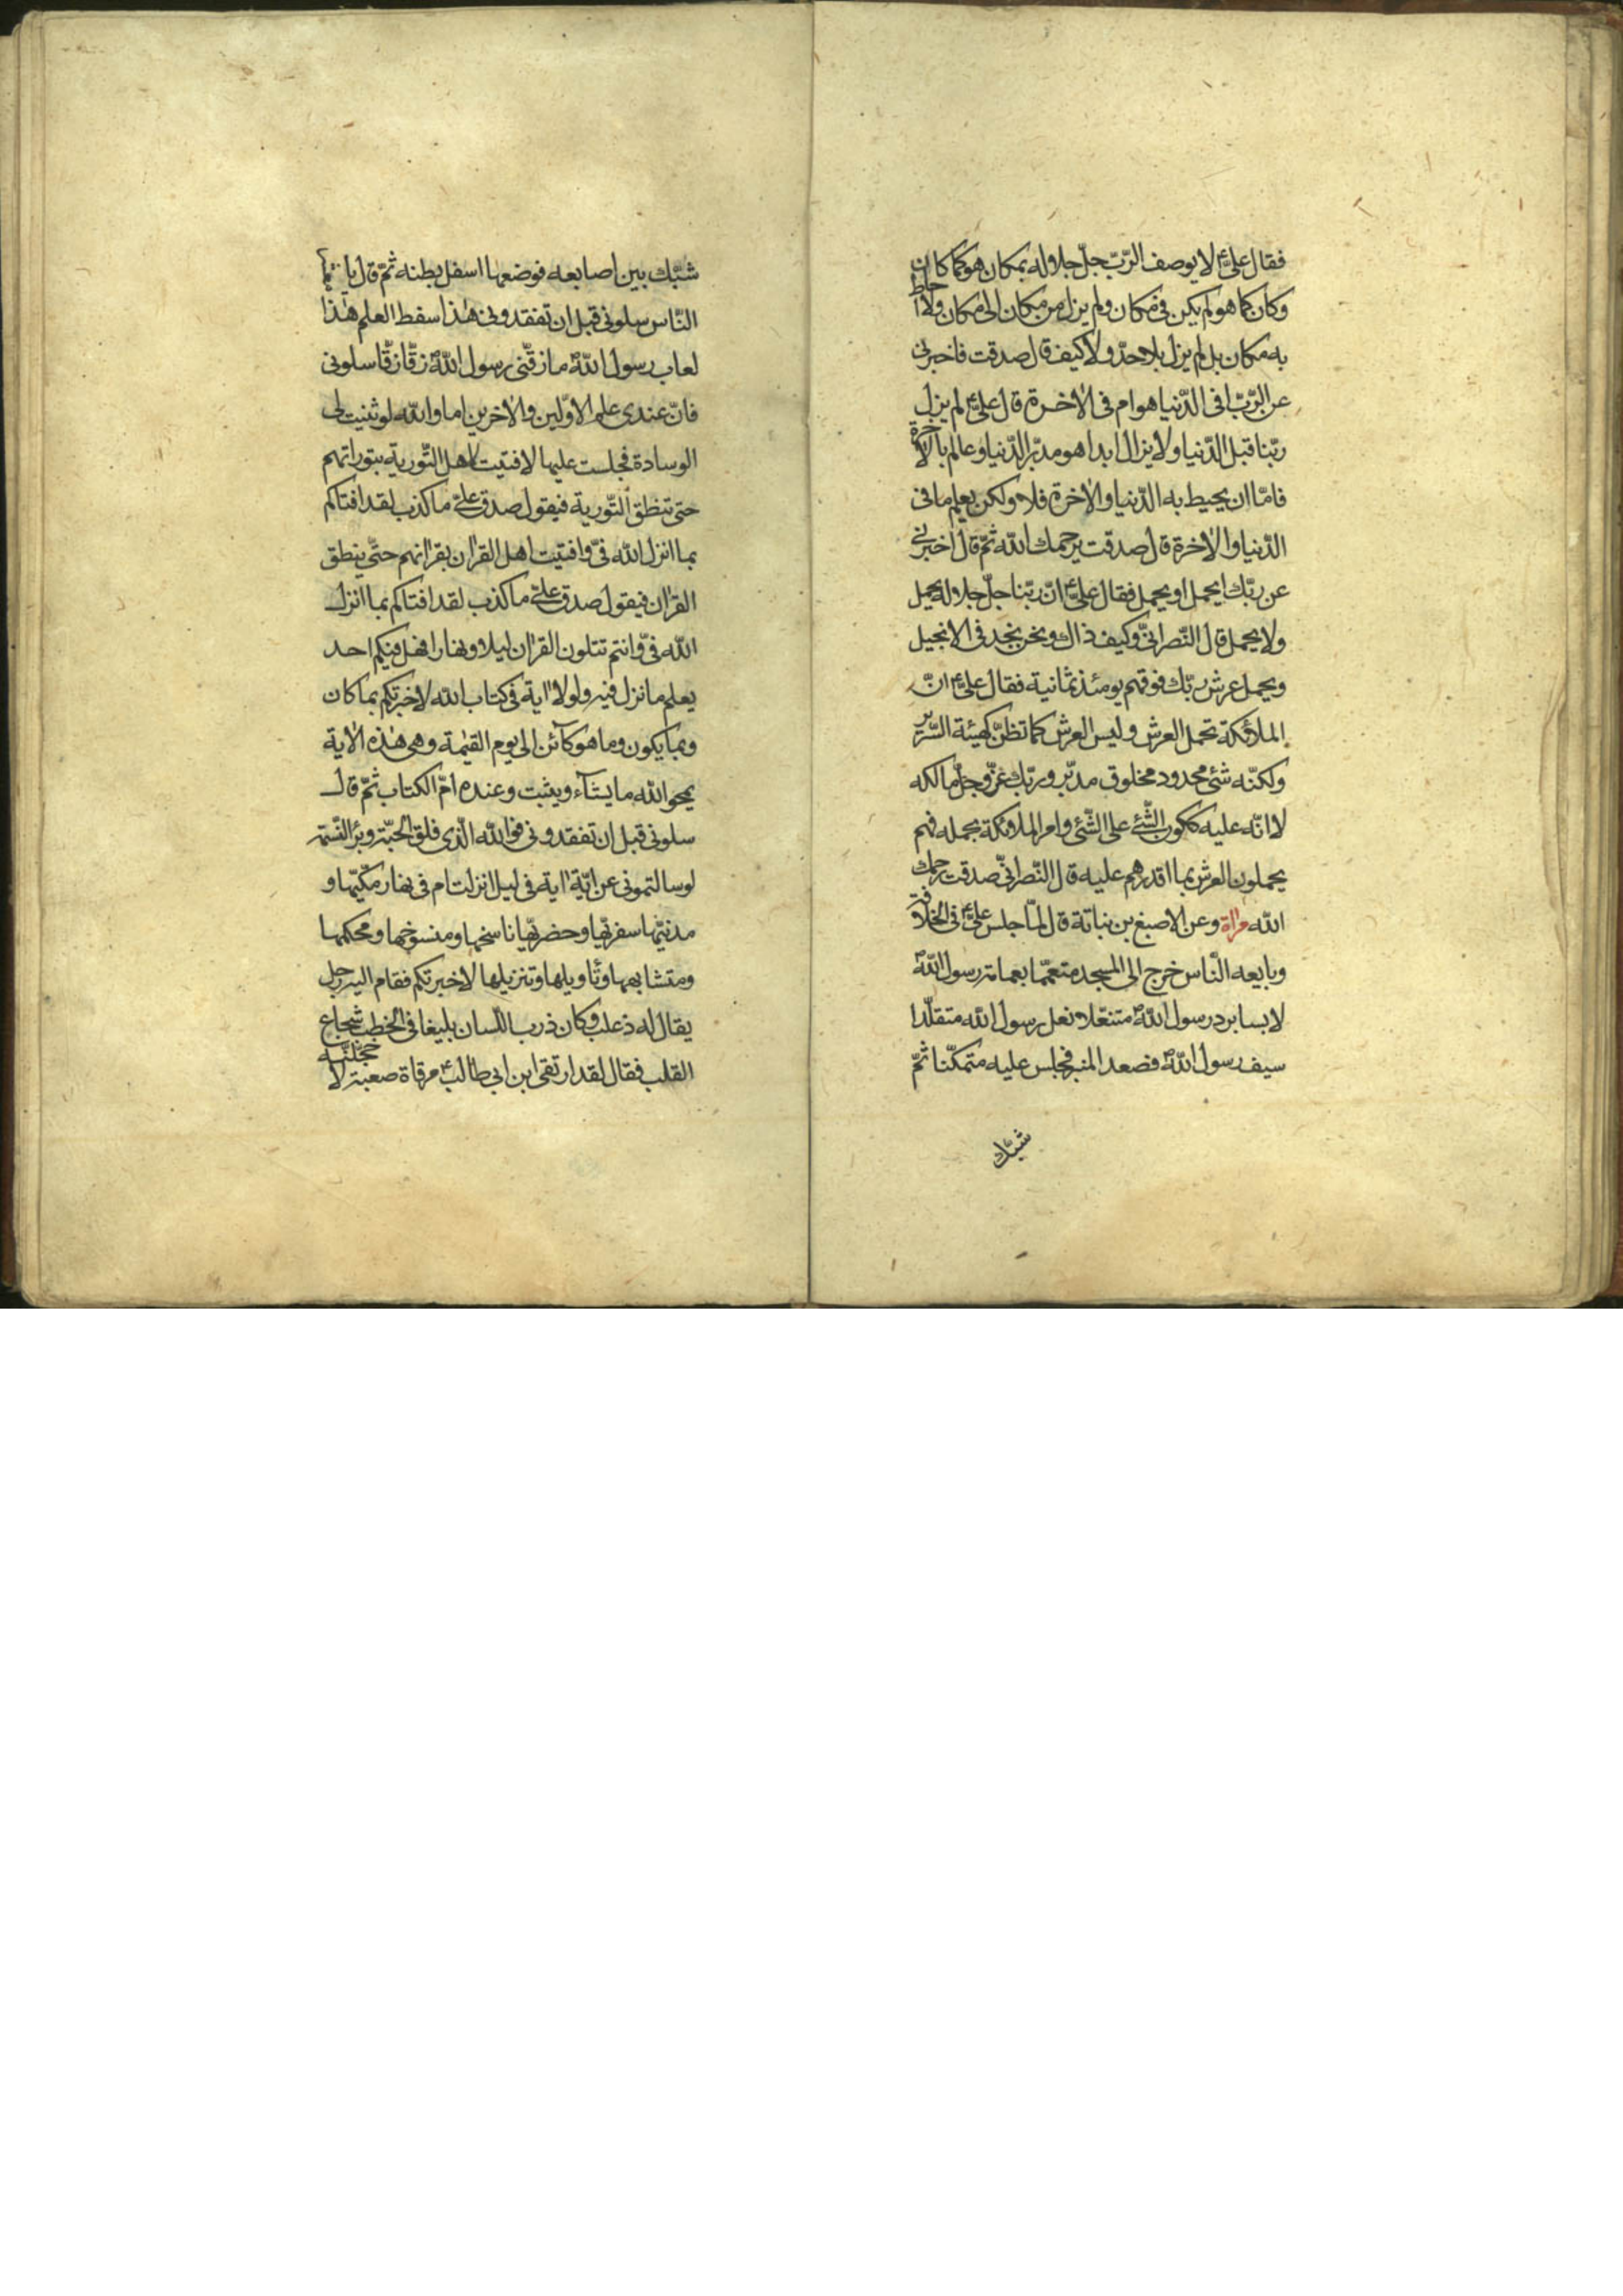 فقال علىّ ع لا يوصف الرّبّ جلّ جلاوله بمكان هو كما كان
وكان كما هو لم يكن فى مكان ولم يزل من مكان الى مكان ولا احاط
به مكان بل لم يزل بلا حدّ ولا كيف قال صدقت فاخبرنى
عن الرّبّ افى الدّنيا هو ام فى الاخرة قال علىّ ع لم يزل
ربّنا قبل الدّنيا ولا يزال ابدا هو مدبّر الدّنيا وعالم بالاخرة
فامّا ان يحيط به الدّنيا والاخرة فلا ولكن يعلم ما فى
الدّنيا والاخرة قال صدقت يرحمك الله ثمّ قال اخبرنى
عن ربّك ايحمل او يحمل فقال علىّ ع انّ ربّنا جلّ جلاوله يحمل
ولا يحمل قال النّصرانىّ وكيف ذاك ونحن نجد فى الانجيل
ويحمل عرش ربّك فوقهم يومئذ ثمانية فقال علىّ ع انّ
الملائكة تحمل العرش وليس العرش كما تظنّ كهيئة السّرير
ولكنّه شئ محدود مخلوق مدبّر وربّك عزّ وجلّ مالكه
لا انّه عليه ككون الشّئ على الشّئ وامر الملائكة بحمله فهم
يحملون العرش بما اقدرهم عليه قال النّصرانىّ صدقت رحمك
الله مراة وعن الاصبغ بن نباتة قال لمّا جلس علىّ ع فى الخلافة
وبايعه النّاس خرج الى المسجد متعمّما بعمامة رسول الله ص
لابسا برد رسول الله ص متنعّلا نعل رسول الله متقلّدا
سيف رسول الله ص فصعد المنبر فجلس عليه متمكّنا ثمّ
شبّك
شبّك بين اصابعه فوضعها اسفل بطنه ثمّ قال يا
النّاس سلونى قبل ان تفقدونى هذا سفط العلم هذا
لعاب رسول الله ص ما زقّنى رسول الله ص زقّا زقّا سلونى
فانّ عندى علم الاوّلين والاخرين اما والله لو ثنيت لى
الوسادة فجلست عليها لافتيت اهل التّورية بتوراتهم
حتى تنطق التّورية فيقول صدق علىّ ما كذب لقد افتاكم
بما انزل الله فىّ وافتيت اهل القران بقرانهم حتّى ينطق
القران فيقول صدق علىّ ما كذب لقد افتاكم بما انزل
الله فىّ وانتم تتلون القران ليلا ونهارا فهل فيكم احد
يعلم ما نزل فيه ولولا اية فى كتاب الله لاخبرتكم بما كان
وبما يكون وما هو كآئن الى يوم القيمة وهى هذه الاية
يمحو الله ما يشآء ويثبت وعنده امّ الكتاب ثمّ قال
سلونى قبل ان تفقدونى فوالله الّذى فلق الحبّة وبرئ النّسمة
لو سالتمونى عن ايّة اية فى ليل انزلت ام فى نهار مكّيّها و
مدنيّها سفريّها وحضريّها ناسخها ومنسوخها ومحكمها
ومتشابهها وتأويلها وتنزيلها لاخبرتكم فقام اليه رجل
يقال له ذعلب وكان ذرب اللّسان بليغا فى الخطب شجاع
القلب فقال لقد ارتقى ابن ابى طالب ع مرقاة صعبة لاخجّلنّه